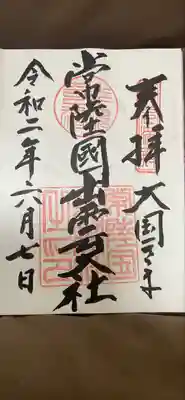 奉拝 大国さま
常陸國出雲大社
令和二年六月七日